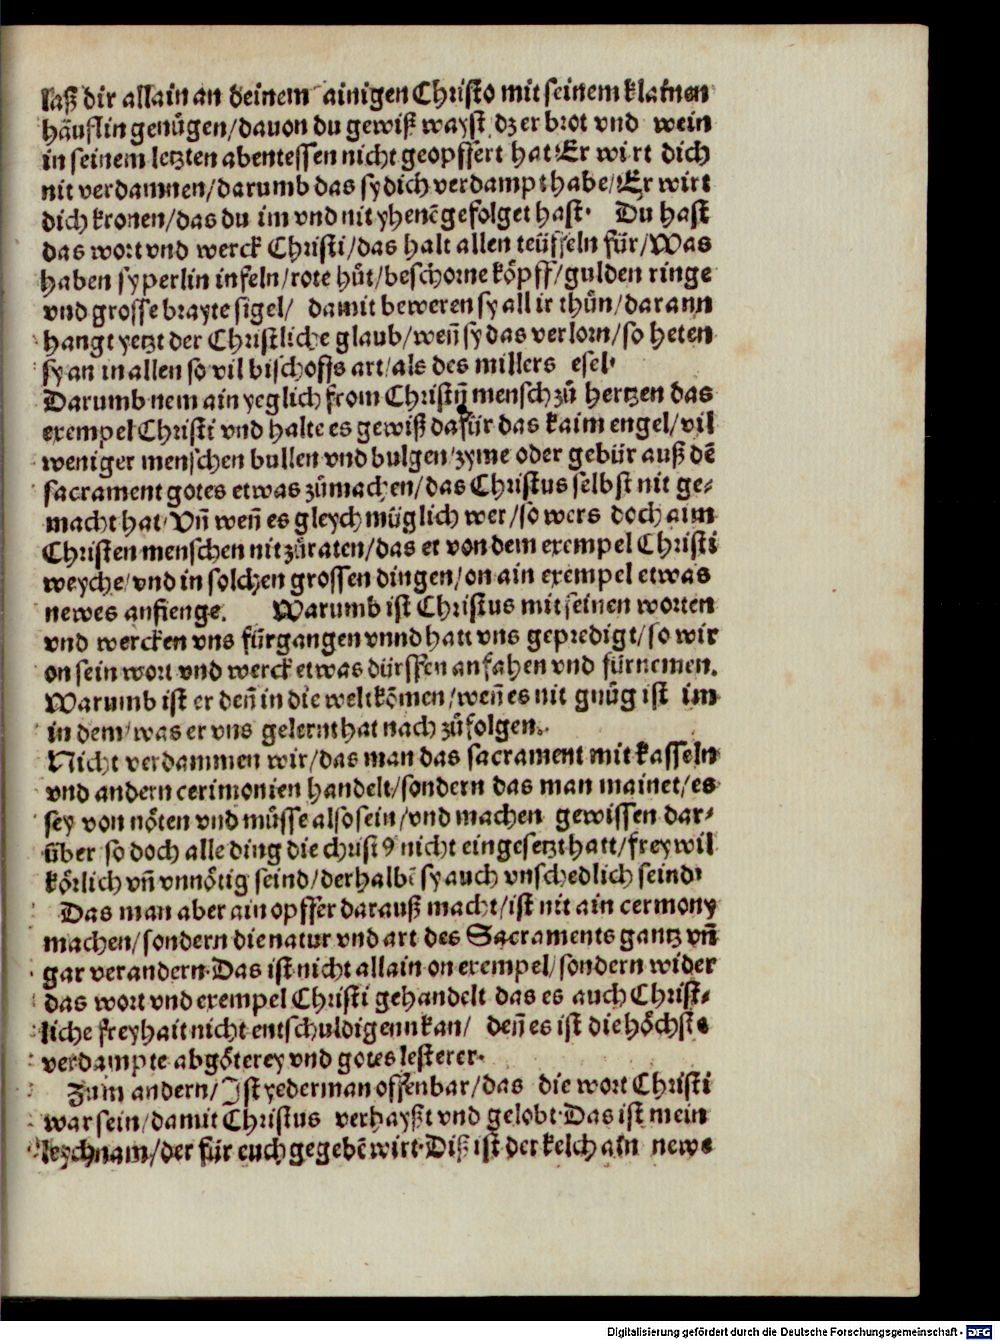 laß dir allain an deinem ainigen Christo mit seinem klainen
häuflin genuͤgen/dauon du gewiß wayst dz er brot vnd wein
in seinem letzten abentessen nicht geopffert hat Er wirt dich
nit verdammen/darumb das sy dich verdampt habe/Er wirt
dich kronen/das du im vnd nit yhenē gefolget hast· Du hast
das wort vnd werck Christi/das halt allen teüffeln für/Was
haben sy perlin infeln/rote huͤt/beschorne köpff/gulden ringe
vnd grosse brayte sigel/ damit beweren sy all ir thuͦn/darann
hangt yetzt der Christliche glaub/weñ sy das verlorn/so heten
sy an in allen so vil bischoffs art/als des millers esel·
Darumb nem ain yeglich from Christṇ̃ mensch zuͦ hertzen das
exempel Christi vnd halte es gewiß dafür das kaim engel/vil
weniger menschen bullen vnd bulgen zyme oder gebür auß dē
sacrament gotes etwas zuͦmachen/das Christus selbst nit ge⸗
macht hat Vñ weñ es gleych müglich wer/so wers doch aim
Christen menschen nit zuͦraten/das er von dem exempel Christi
weyche/vnd in solchen grossen dingen/on ain exempel etwas
newes anfienge. Warumb ist Christus mit seinen worten
vnd wercken vns fürgangen vnnd hatt vns gepredigt/so wir
on sein wort vnd werck etwas dürffen anfahen vnd fürnemen.
Warumb ist er deñ in die welt kōmen/weñ es nit gnuͦg ist im
in dem/was er vns gelernt hat nach zuͦfolgen.
Nicht verdammen wir/das man das sacrament mit kasseln
vnd andern cerimonien handelt/sondern das man mainet/es
sey von nöten vnd muͤsse also sein/vnd machen gewissen dar⸗
über so doch alle ding die christ9 nicht eingesetzt hatt/frey wil
körlich vñ vnnötig seind/derhalbē sy auch vnschedlich seind·
Das man aber ain opffer darauß macht/ist nit ain cermony
machen/sondern die natur vnd art des Sacraments gantz vñ
gar verandern·Das ist nicht allain on exempel/sondern wider
das wort vnd exempel Christi gehandelt das es auch Christ⸗
liche freyhait nicht entschuldigenn kan/ deñ es ist die höchste
verdampte abgötterey vnd gotes lesterer·
Zum andern/Ist yederman offenbar/das die wort Christi
war sein/damit Christus verhayßt vnd gelobt·Das ist mein
leychnam/der für euch gegebē wirt·Diß ist der kelch ain newe
Digitalisierung gefördert durch die Deutsche Forschungsgemeinschaft - DFG